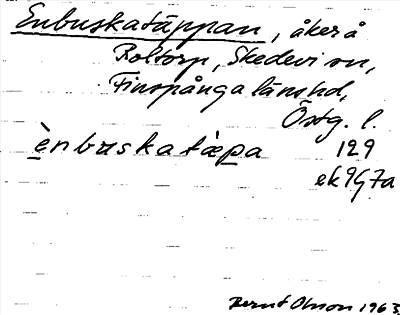 Enbuskatäppan, åker å
Roltorp, Skedevi sn,
Finspånga länshd,
Östg. l.
ènbuskatæ̀pa 129
ek 9G7a
Bernt Olsson 1963